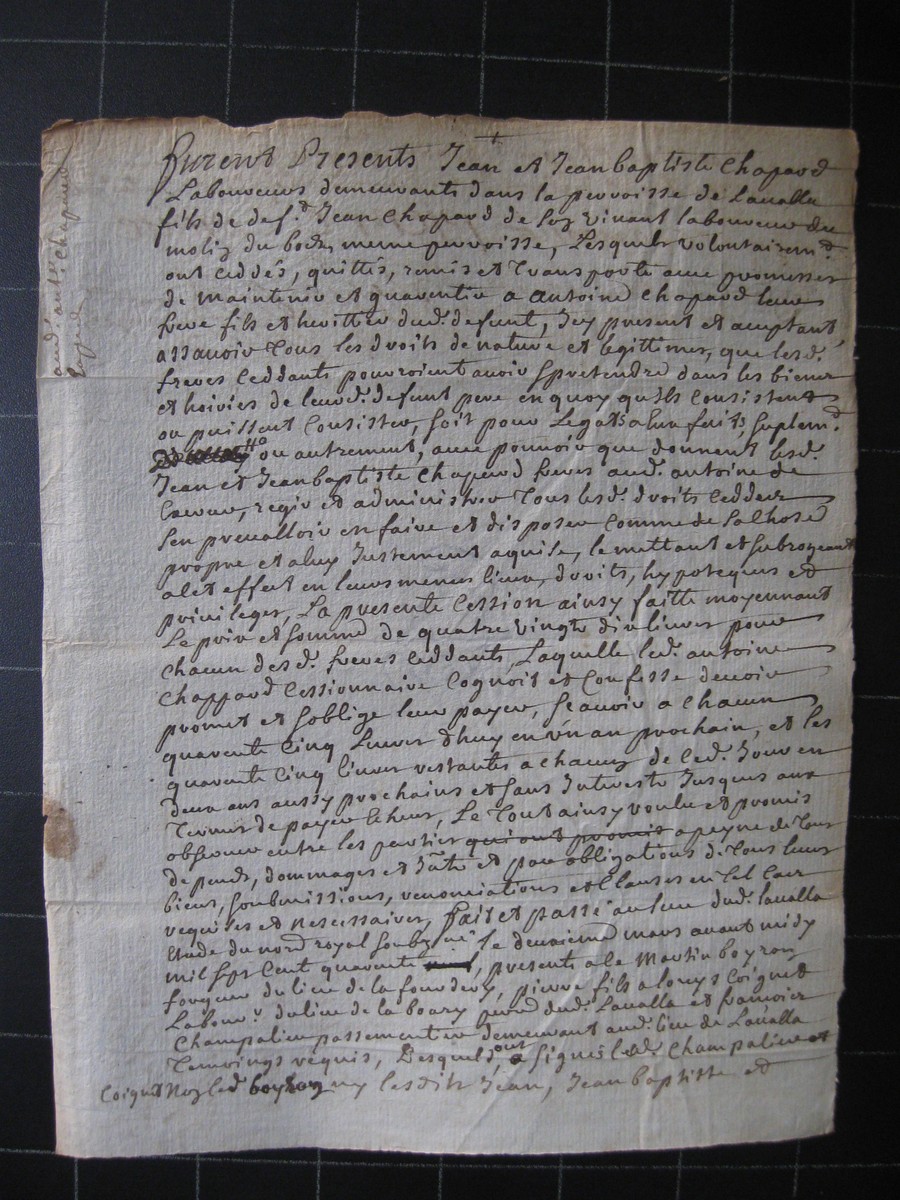 furent Presents Jean et Jean baptiste Chapard
Laboureurs demeurants dans la perroisse de Lavalla
fils de def.t Jean Chapard de son vivant laboureur du
molin du bost, meme perroisse, Lesquels volontairem.t
ont Ceddés, quittés, remis et transporté avec promesses
de maintenir et guarentir a antoine Chapard leur
frere fils et heritier dud. defunt, Icy present et aceptant,
assavoir tous les droits de nature et legittimes, que lesd.
freres Ceddants pouvroient avoir pretendre dans les biens
et hoiries de leurd. defunt pere en quoy qu'ils Consistent
ou puissent Consister, soit pour Legats a eux faits, suplem.t
ou autrement, avec pouvoir que donnent lesd.
Jean et Jean baptiste Chapard freres aud. antoine de
regir et administrer tous lesd. droits Ceddes
sen prevalloir en faire et disposer Comme de sa Chose
propre et a luy Justement aquise, le mettant et subrogeant
a let effert en leurs memes lieux, droits, hypoteques et
privileges, La presente Cession ainsy faitte moyennant
Le prix et somme de quatre vingts dix livres pour
Chacun desd. freres Ceddants, Laquelle led. antoine
Chappard Cessionnaire Cognoit et Confesse devoir
promet et soblige leur payer, scavoir a Chacun
quarente Cinq Livres d'huy en un an prochain, et les
quarente Cinq livres restants a Chacun de Ced. Jour en
deux ans aussy prochains et sans Interests Jusques aux
termes de payer Echeus, Le tout ainsy voulu et promis
observer entre les parties qui ont promis a peyne de tous
depends, dommages et et par obligations de tous leurs
biens, soubmissions, renonciations et Clauses en tel Cas
requises et nescessaires, fait et passé au lieu dud. lavalla
Etude du no.re royal soubz.né le deuxieme mars avant midy
mil sept Cent quarente, presents a le Martin boyron
forgeur du lieu de la fourdery, pierre fils a louys Coignet
Labour.r du lieu de la boary dud. Lavalla et francois
Champalier passementier demeurant aud. lieu de Lavalla
temoings requis, Lesquels ont signé led. Champalier et
Coignet Non led. boyron ny lesdits Jean, Jean baptiste et
aud. ant.e Chapard